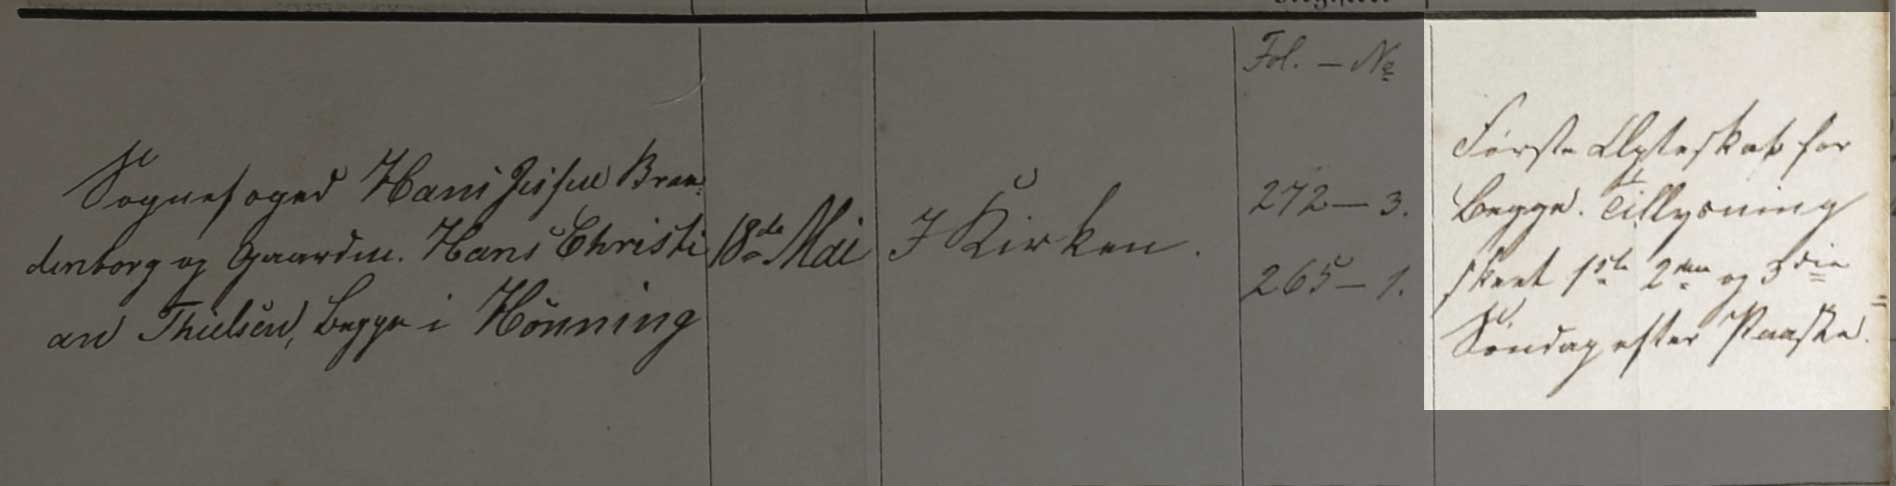 Fol. – No
Sognefoged Hans Jessen Bran-
denborg og Gaardm. Hans Christi
an Thielsen, begge i Hönning
18de Mai
I Kirken.
272 – 3.
265 – 1.
Første Ægteskab for
Begge. Tillysning
skeet 1ste 2den og 3die
Søndag efter Paaske.